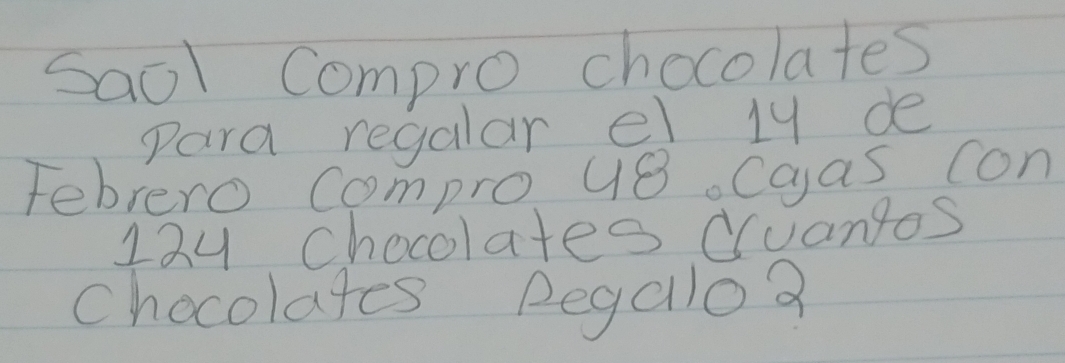 Saul Compro chocolates
para regalar el 14 de
Febrero Compro 48 .Cajas con
124 Chocolates Cuantos
Chocolates Regalo?